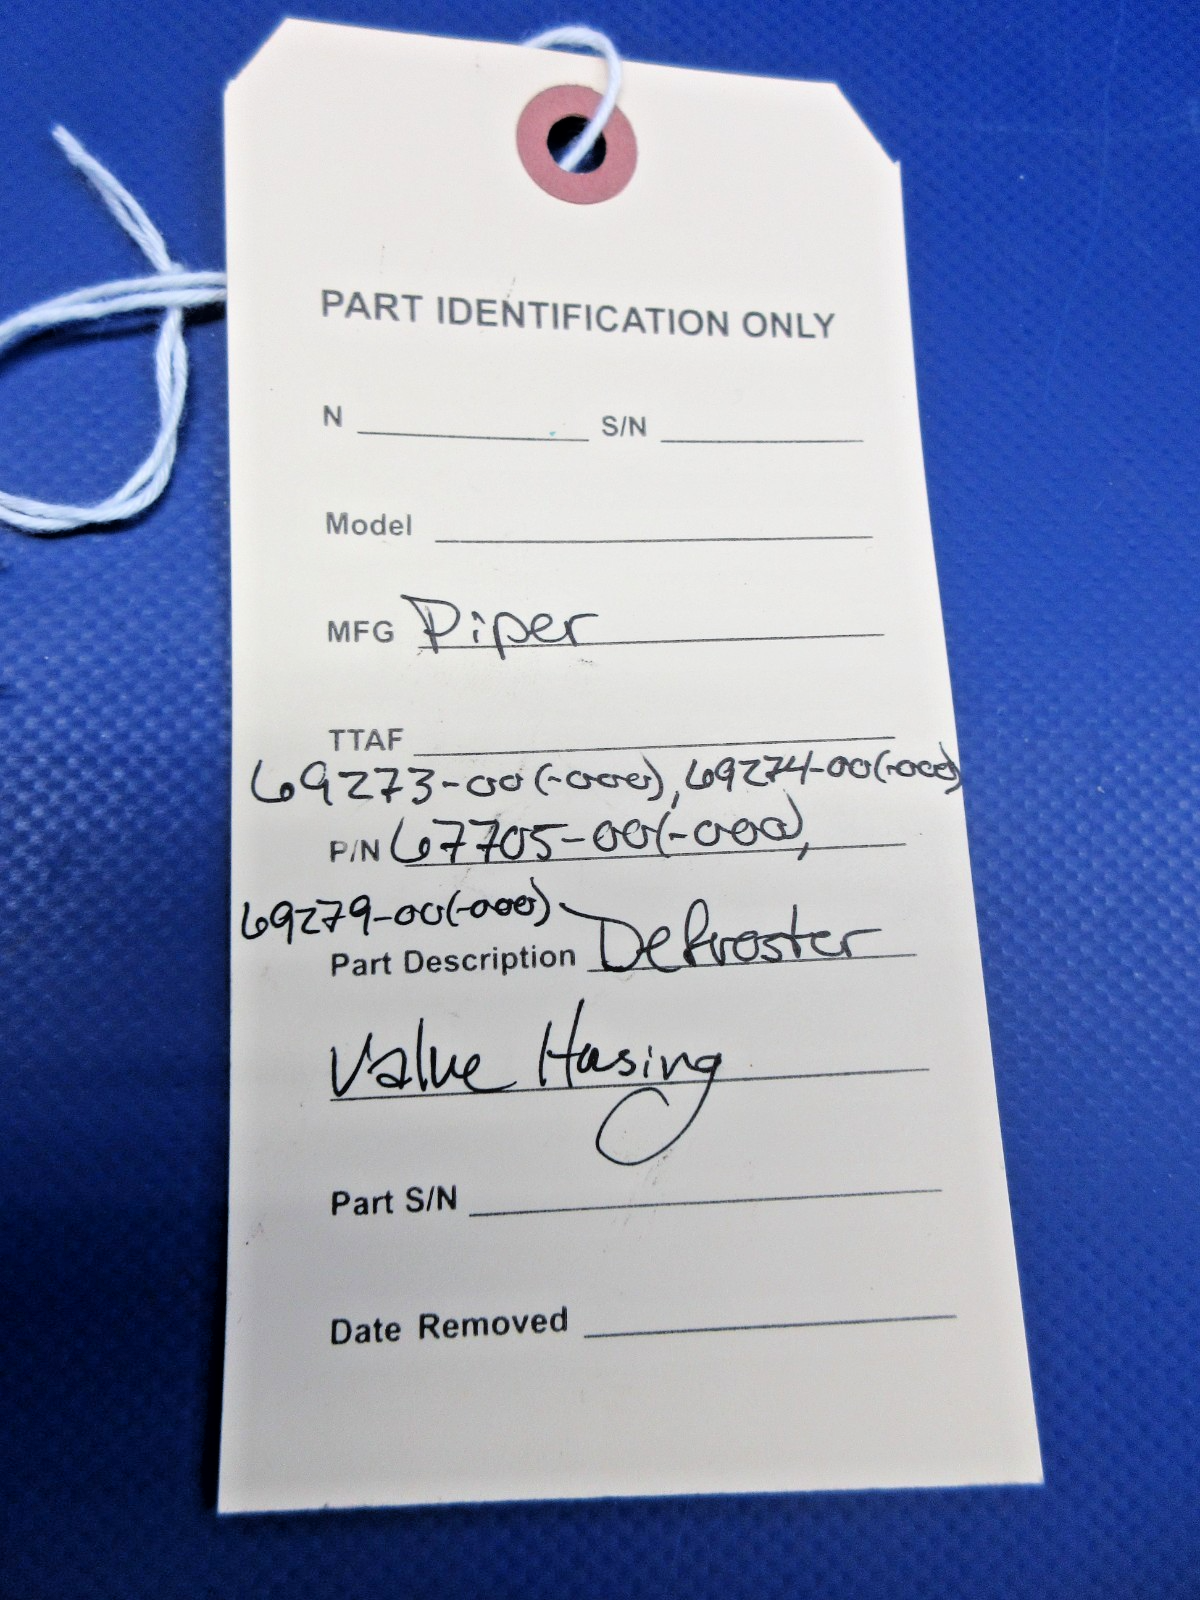 PART IDENTIFICATION ONLY
N S/N
Model
MFG Piper
TTAF
69273-00(-000), 69274-00(-000)
P/N 67705-00(-000),
69279-00(-000)
Part Description Defroster
Valve Hosing
Part S/N
Date Removed